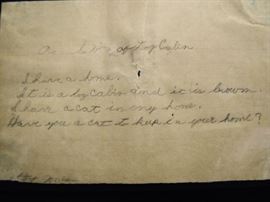 A Log Cabin
I have a home.
It is a log Cabin and it is brown.
I have a cat in my home.
Have you a cat to keep in your home?